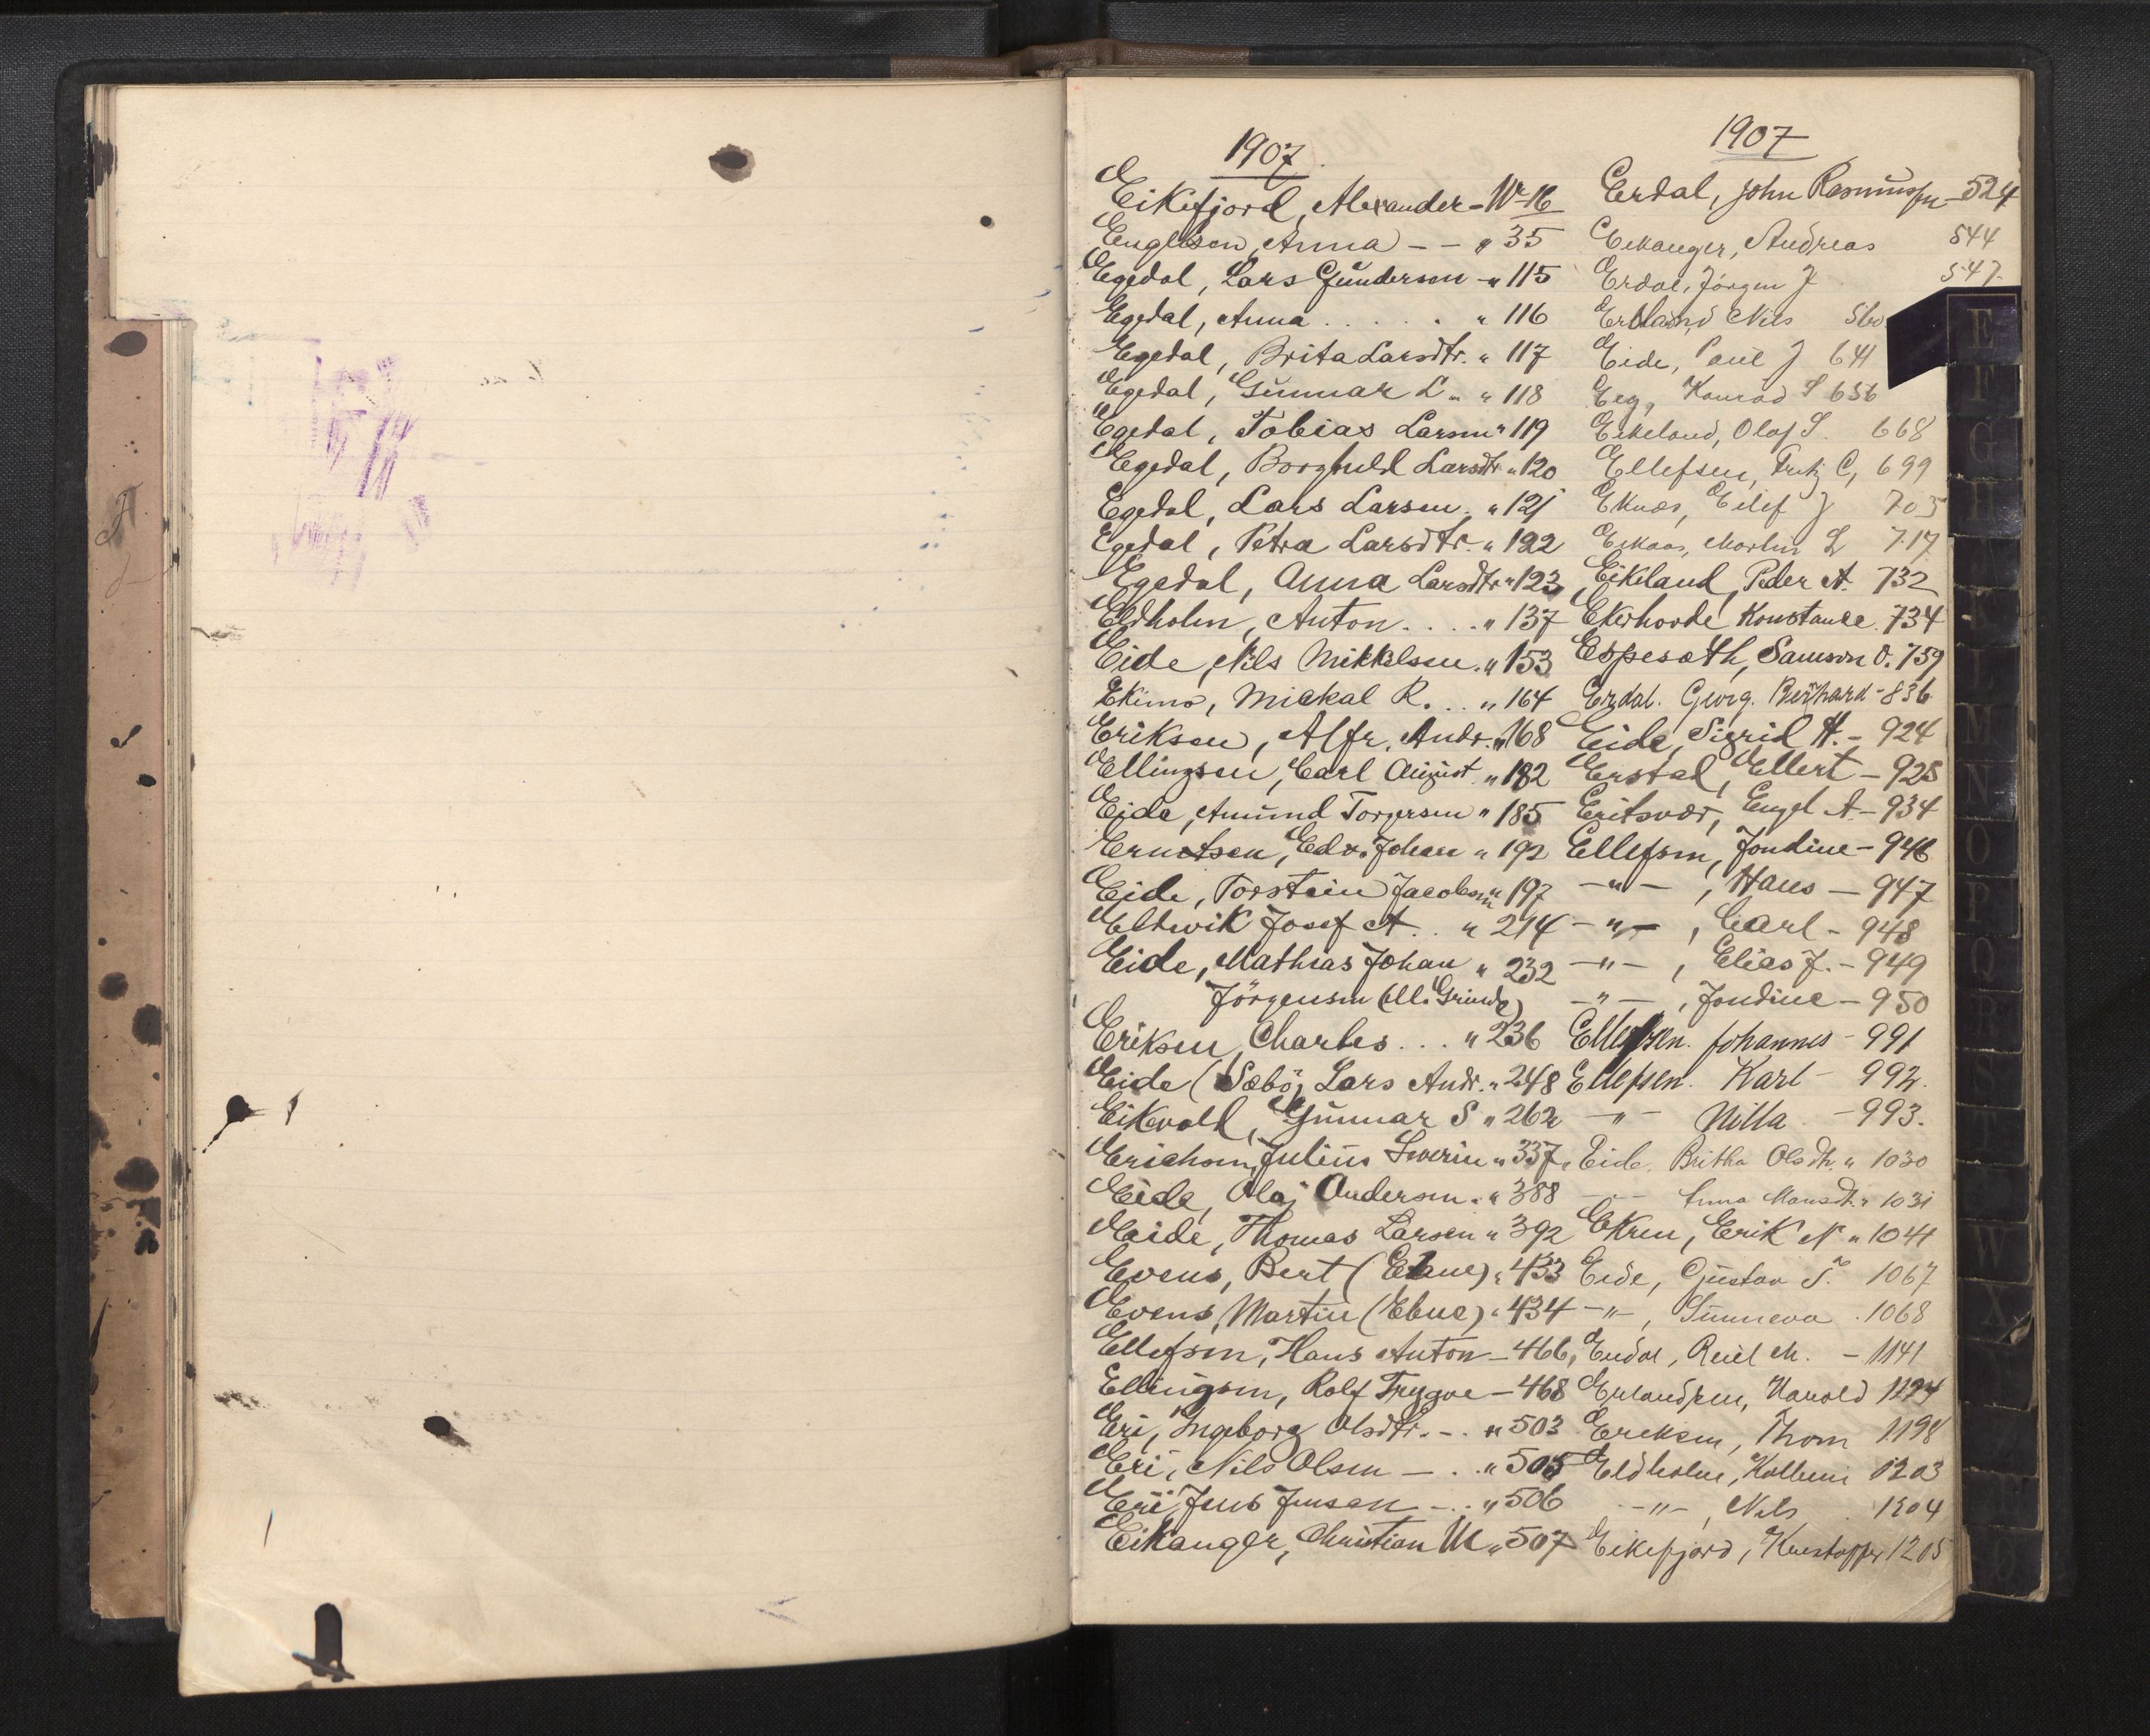 1907
Eikefjord, Alexander - Nr 16
Engelsen, Anna - - " 35
Egedal, Lars Gunderson - " 115
Egedal, Anna . . . . . " 116
Egedal, Brita Larsdtr. " 117
Egedal, Gunnar L. " 118
Egedal, Tobias Larsen " 119
Egedal, Borghild Larsdtr. " 120
Egedal, Lars Larsen. " 121
Egedal, Petra Larsdtr. " 122
Egedal, Anna Larsdtr " 123
Eldholm, Anton . . . . " 137
Eide, Nils Mikkelsen. " 153
Mickal R. . . . " 164
Eriksen, Alfr. Andr. " 168
Ellingsen, Carl August " 182
Eide, Amund Torgersen " 185
Erntsen, Edv. Johan " 192
Eide, Torstein Jacobsen " 197
Eltvik Josef A . . " 214
Eide, Mathias Johan " 232
Jörgensen (Ell. Grinde)
Eriksen, Charles . . . " 236
Eide (Sæbö) Lars Andr. " 248
Eikevold, Gunnar S " 262
Erichsen, Julius Severin " 337
Eide, Olaj Andersen. " 388
Eide, Thomas Larsen " 392
Evens, Bert (Ebne) " 433
Evens, Martin (Ebne) " 434
Ellefsen, Hans Anton - 466
Ellingsen, Rolf Trygve - 468
Eri, Ingeborg Olsdtr. - . " 503
Eri, Nils Olsen - . . " 505
Eri, Jens Jensen - . . " 506
Eikanger, Christian M " 507
1907
Erdal, John Rasmussen - 524
Eikanger, Andreas 544
Erdal, Jörgen J 547
Erstand Nils 560
Eide, Paul J 641
Eeg, Konrad S 656
Eikeland, Olaf S. 668
Ellefsen, Fritz C, 699
Eknæs, Eilef J 705
Eikaas, Martin L 717
Eikeland, Peder A. 732
Ekerhovde Konstanse. 734
Espesæth, Samson O. 759
Erdal. Georg. Bernhard - 836
Eide, Sigrid H. - 924
Erstad, Ellert - 925
Eritsvær, Engel A - 934
Ellefsen, Jondine - 946
- " - , Hans - 947
- " - , Carl - 948
- " - , Elias J. - 949
- " - , Jondine - 950
Ellefsen. Johannes - 991
Ellefsen. Karl - 992.
- " - Nilla - 993.
Eide, Britha Olsdtr. " 1030
- - Anna Monsdtr. " 1031
Ekren, Erik N " 1041
Eide, Gustav S. 1067
- " - , Sunneva . 1068
Endal, Reiel M. - 1141
Erlandsen, Harold 1194
Ereksen, Thom 1198
Eldholm, 1203
- " - , Nils 1204
Eikefjord, Kristoffer 1205
E
F
G
H
K
L
M
N
O
P
Q
R
S
W
X